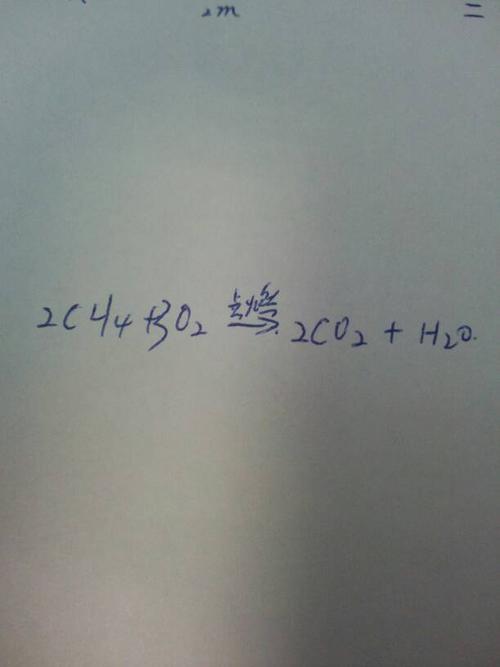 2m =
2CH₄ + 3O₂ 点燃→ 2CO₂ + H₂O.